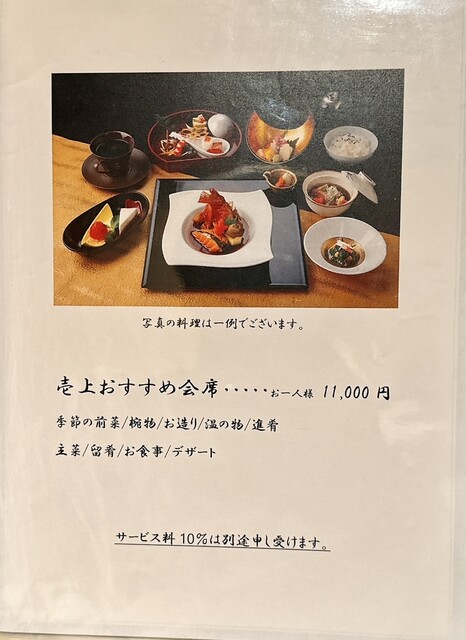 写真の料理は一例でございます。
壱上おすすめ会席・・・・・お一人様 11,000 円
季節の前菜/椀物/お造り/温の物/進肴
主菜/留肴/お食事/デザート
サービス料 10%は別途申し受けます。